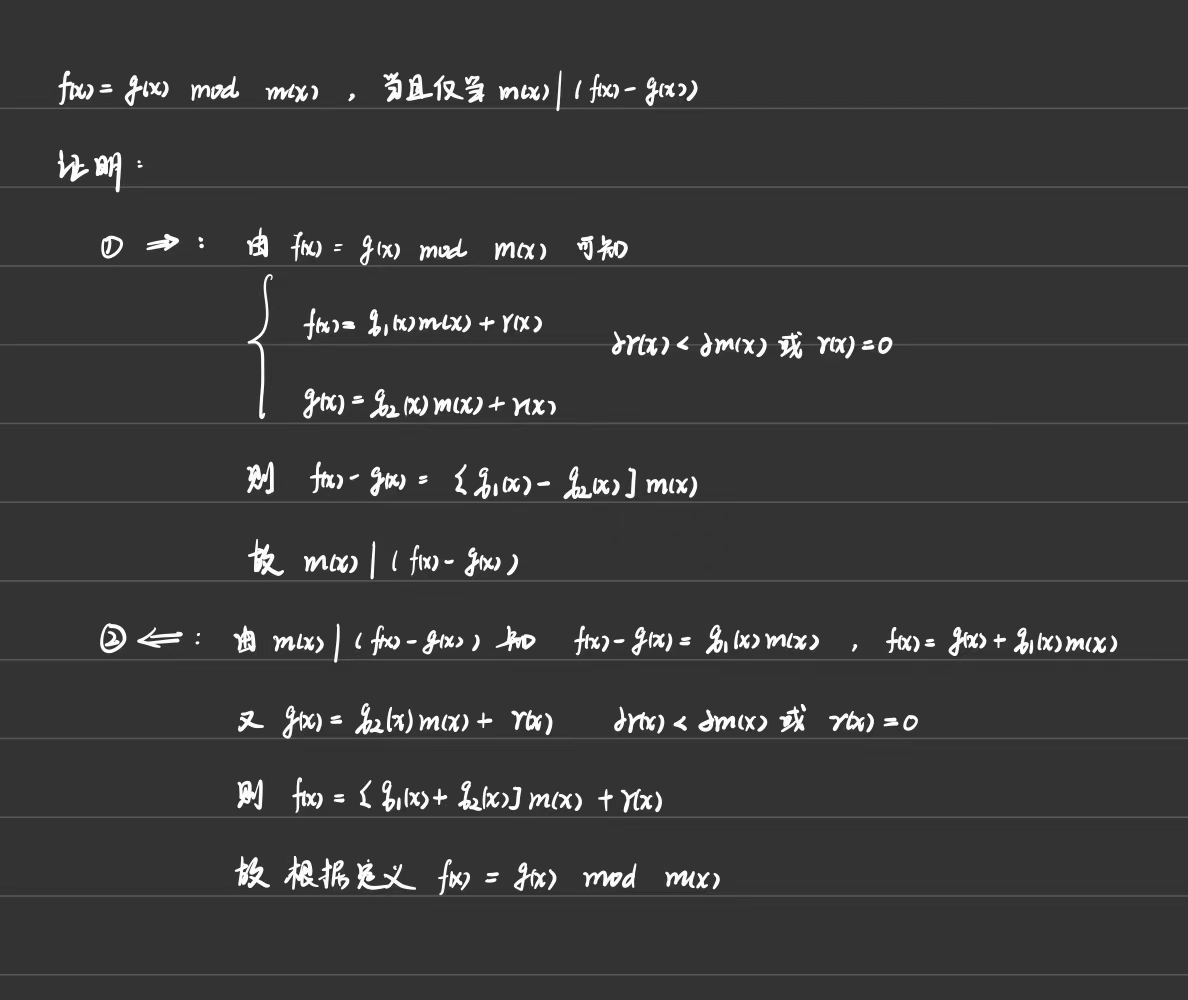 f(x) = g(x) mod m(x) , 当且仅当 m(x) | (f(x) - g(x))
证明:
① ⇒: 由 f(x) = g(x) mod m(x) 可知
f(x) = q₁(x)m(x) + r(x)
∂r(x) < ∂m(x) 或 r(x) = 0
g(x) = q₂(x)m(x) + r(x)
则 f(x) - g(x) = [q₁(x) - q₂(x)] m(x)
故 m(x) | (f(x) - g(x))
② ⇐: 由 m(x) | (f(x) - g(x)) 知 f(x) - g(x) = q₁(x)m(x) , f(x) = g(x) + q₁(x)m(x)
又 g(x) = q₂(x)m(x) + r(x) ∂r(x) < ∂m(x) 或 r(x) = 0
则 f(x) = [q₁(x) + q₂(x)] m(x) + r(x)
故 根据定义 f(x) = g(x) mod m(x)